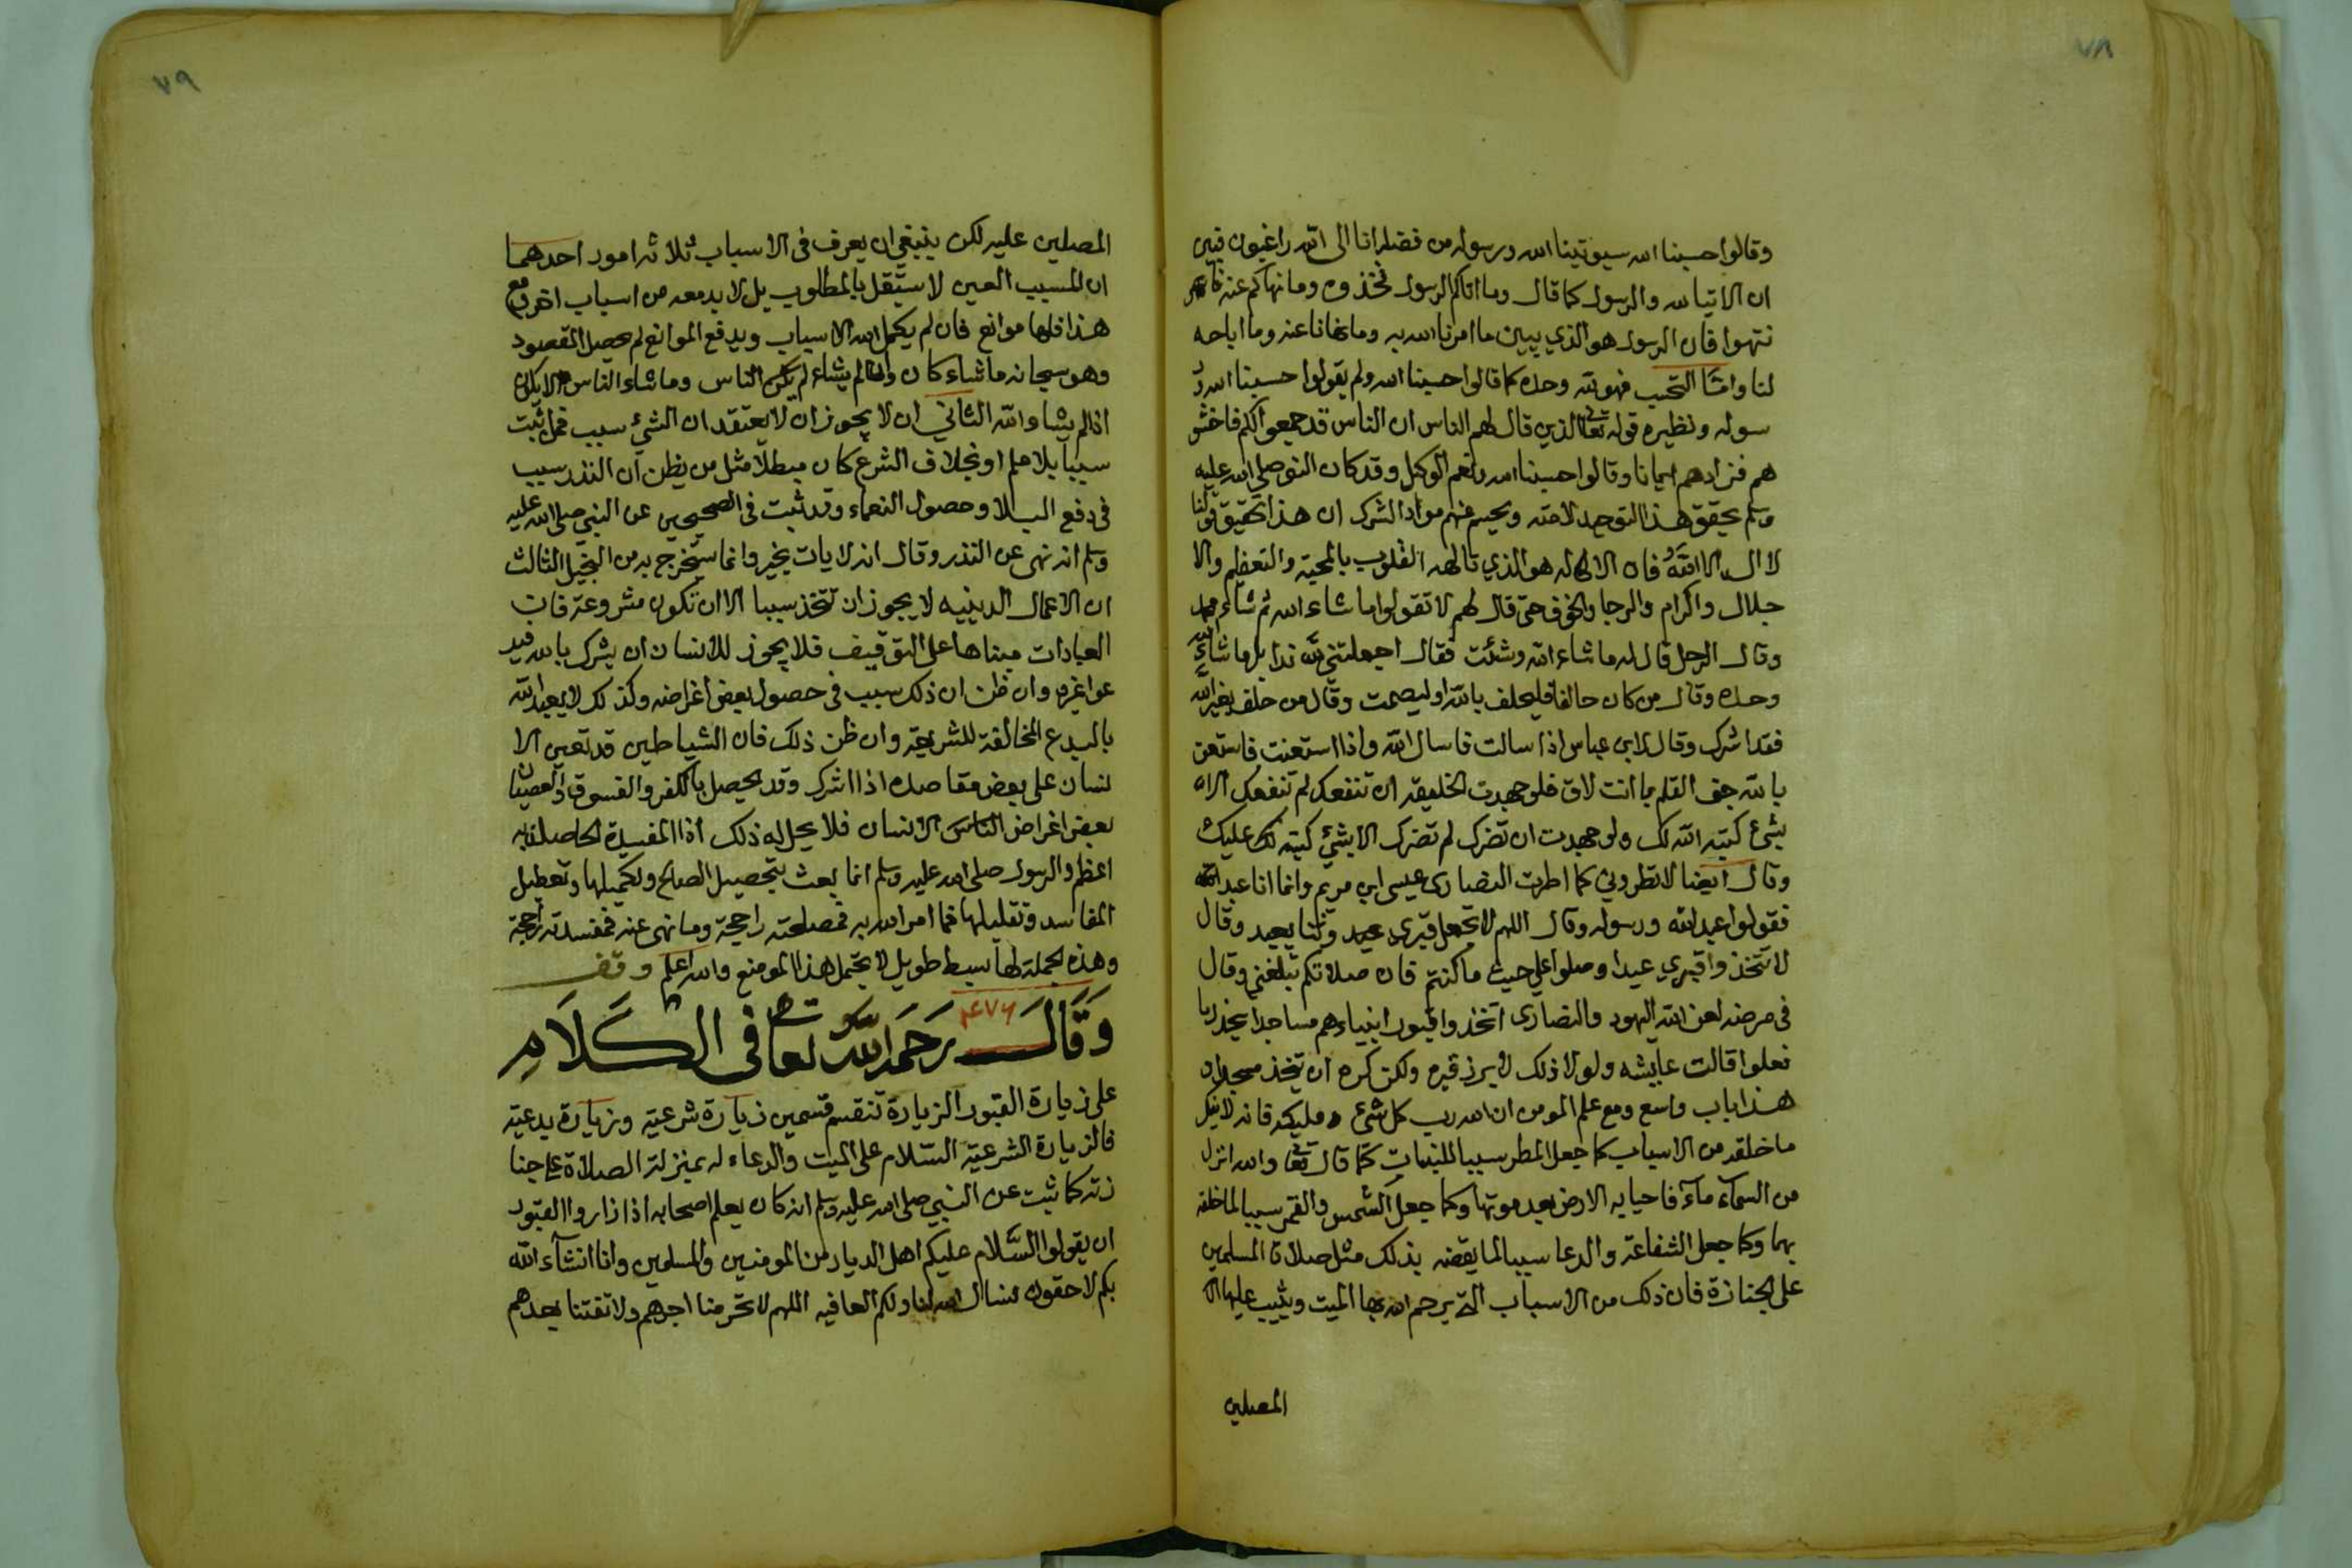 ٧٨
وقالوا حسبنا الله سيوتينا الله ورسوله من فضله انا الى الله راغبون فبين
ان الاتيا لله والرسول كما قال وما اتاكم الرسول فخذوه وما نهاكم عنه فا
نتهوا فان الرسول هو الذي يبين ما امرنا الله به وما نهانا عنه وما اباحه
لنا واما التحسب فهو لله وحده كما قالوا حسبنا الله ولم يقولوا حسبنا الله ور
سوله ونظيره قوله تعا الذين قال لهم الناس ان الناس قد جمعوا لكم فاخشو
هم فزادهم ايمانا وقالوا حسبنا الله ونعم الوكيل وقد كان النبي صلى الله عليه
وسلم يحقق هذا التوحيد لامته ويحسم عنهم مواد الشرك ان هذا تحقيق قولنا
لا اله الا الله فان الاله هو الذي تالهه القلوب بالمحبة والتعظيم والا
جلال واكرام والرجا والخوف حتى قال لهم لا تقولوا ما شاء الله ثم شاء محمد
وقال الرجل قال له ما شاء الله وشئت فقال اجعلتني لله ندا بل ما شاء الله
وحده وقال من كان حالفا فليحلف بالله او ليصمت وقال من حلف بغير الله
فقد اشرك وقال لابن عباس اذا سالت فاسال الله واذا استعنت فاستعن
بالله جف القلم بما انت لاق فلو جهدت الخليقه ان تنفعك لم تنفعك الا
بشئ كتبه الله لك ولو جهدت ان تضرك لم تضرك الا بشئ كتبه الله عليك
وقال ايضا لا تطروني كما اطرت النصارى عيسى ابن مريم وانما انا عبد الله
فقولوا عبد الله ورسوله وقال اللهم لا تجعل قبري عيد وثنا يعبد وقال
لا تتخذوا قبري عيدا وصلوا علي حيث ما كنتم فان صلاتكم تبلغني وقال
في مرضه لعن الله اليهود والنصارى اتخذوا قبور ابنياءهم مساجدا يحذر ما
فعلوا قالت عايشه ولولا ذلك لابرز قبره ولكن كره ان يتخذ مسجدا و
هذا باب واسع ومع علم المومن ان الله رب كل شئ ومليكه فانه لا ينكر
ما خلقه من الاسباب كما جعل المطر سببا للنبات كما قال تعا والله انزل
من السماء ماء فاحيا به الارض بعد موتها وكما جعل الشمس والقمر سببا لما خلقه
بهما وكما جعل الشفاعة والدعا سببا لما يقضه بذلك مثل صلاة المسلمين
على الجنازة فان ذلك من الاسباب التي يرحم الله بها الميت ويثيب عليها ا
المصلين
٧٩
المصلين عليه لكن ينبغي ان يعرف في الاسباب ثلاثه امور احدهما
ان المسبب المعين لا يستقل بالمطلوب بل لا بد معه من اسباب اخر ومع
هذا فلها موانع فان لم يكمل الله الاسباب ويدفع الموانع لم يحصل المقصود
وهو سبحانه ما شاء كان وان لم يشاء لم يكن الناس وما شاء الناس لا يكون
اذا لم يشا والله الثاني ان لا يجوز ان لا يعتقد ان الشئ سبب فمن اثبت
سببا بلا علم او بخلاف الشرع كان مبطلا مثل من يظن ان النذر سبب
في دفع البلا وحصول النعماء وقد ثبت في الصحيحين عن النبي صلى الله عليه
وسلم انه نهى عن النذر وقال انه لا يات بخير وانما يستخرج به من البخيل الثالث
ان الاعمال الدينيه لا يجوز ان تتخذ سببا الا ان تكون مشروعة فان
العبادات مبناها على التوقيف فلا يجوز للانسان ان يشرك بالله فيد
عوا غيره وان ظن ان ذلك سبب في حصول بعض اغراضه وكذلك لا يعبد الله
بالبدع المخالفة للشريعة وان ظن ذلك فان الشياطين قد تعين الا
نسان على بعض مقاصده اذا اشرك وقد يحصل بالكفر والفسوق والعصيان
بعض اغراض الناس الانسان فلا يحل له ذلك اذا المفسدة الحاصله به
اعظم والرسول صلى الله عليه وسلم انما بعث بتحصيل المصالح وتكميلها وتعطيل
المفاسد وتقليلها فما امر الله به فمصلحته راجحة وما نهى عنه فمفسدته راجحة
وهذه الجملة لها بسط طويل لا يحتمل هذا الموضع والله اعلم وقف
٤٧٦
وقال رحمه الله تعا في الكلام
على زيارة القبور الزيارة تنقسم قسمين زيارة شرعية وزيارة بدعية
فالزيارة الشرعية السلام على الميت والدعاء له بمنزلة الصلاة على جنا
زته كما ثبت عن النبي صلى الله عليه وسلم انه كان يعلم اصحابه اذا زاروا القبور
ان يقولوا السلام عليكم اهل الديار من المومنين والمسلمين وانا انشاء الله
بكم لاحقون نسال الله لنا ولكم العافيه اللهم لا تحرمنا اجرهم ولا تفتنا بعدهم